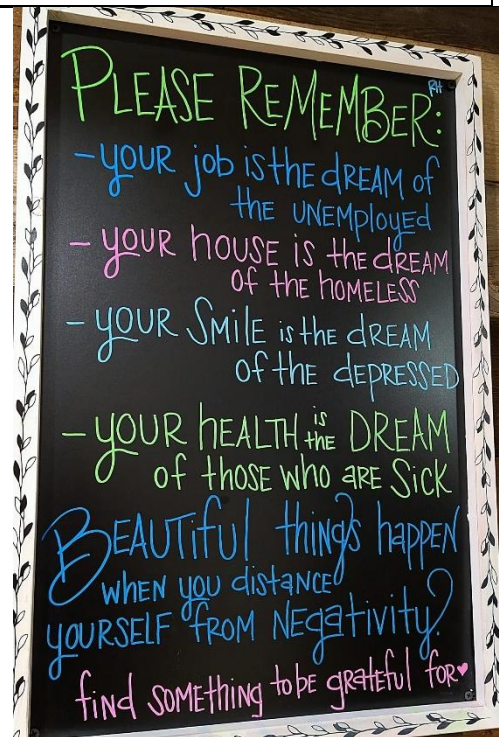 RH
PLEASE REMEMBER:
- YOUR job is the dREAM of
the UNEMployed
- YOUR house is the dREAM
of the HOMELESS
- YOUR SMilE is the dREAM
of the dEPRESSED
- YOUR hEALTH is the DREAM
of those who ARE SiCK
BEAUTiful things happen
when you distance
yOURSELF FROM NEgativity?
find SOMEthing to be grateful for♥